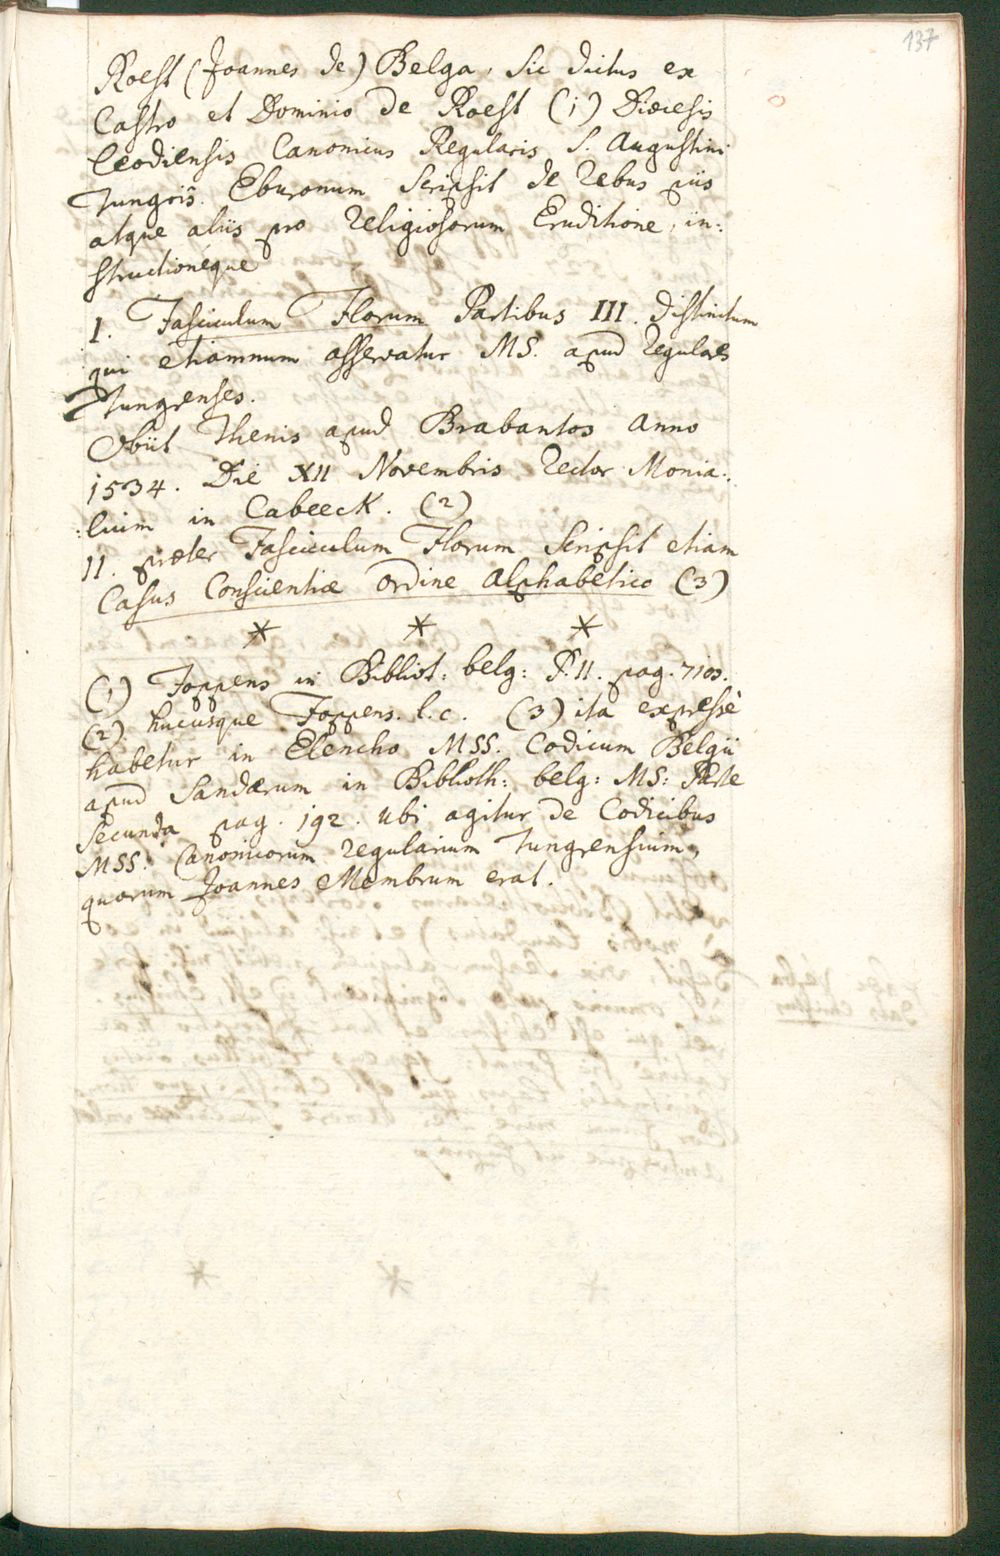 137
Roest (Joannes de) Belga, sic dictus ex
Castro et Dominio de Roest (1) Diœcesis
Leodiensis Canonicus Regularis S. Augustini
Tungris Eburonum scripsit de rebus piis
atque aliis pro religiosorum Eruditione, in:
structioneque
I. Fasciculum Florum Partibus III. distinctum
qui etiamnum asservatur MS. apud Regulares
Tungrenses.
Obiit Thenis apud Brabantos Anno
1534. Die XII Novembris Rector Monia:
:lium in Cabeeck. (2)
II. præter Fasciculum Florum scripsit etiam
Casus Conscientiæ ordine Alphabetico (3)
* * *
(1) Foppens in Bibliot: belg: P. II. pag.
(2) hucusque Foppens. l. c. (3) ita expressè
habetur in Elencho MSS. Codicum Belgii
apud Sanderum in Biblioth: belg: MS: Parte
Secunda pag. 192. ubi agitur de Codicibus
MSS. Canonicorum regularium Tungrensium,
quorum Joannes Membrum erat.